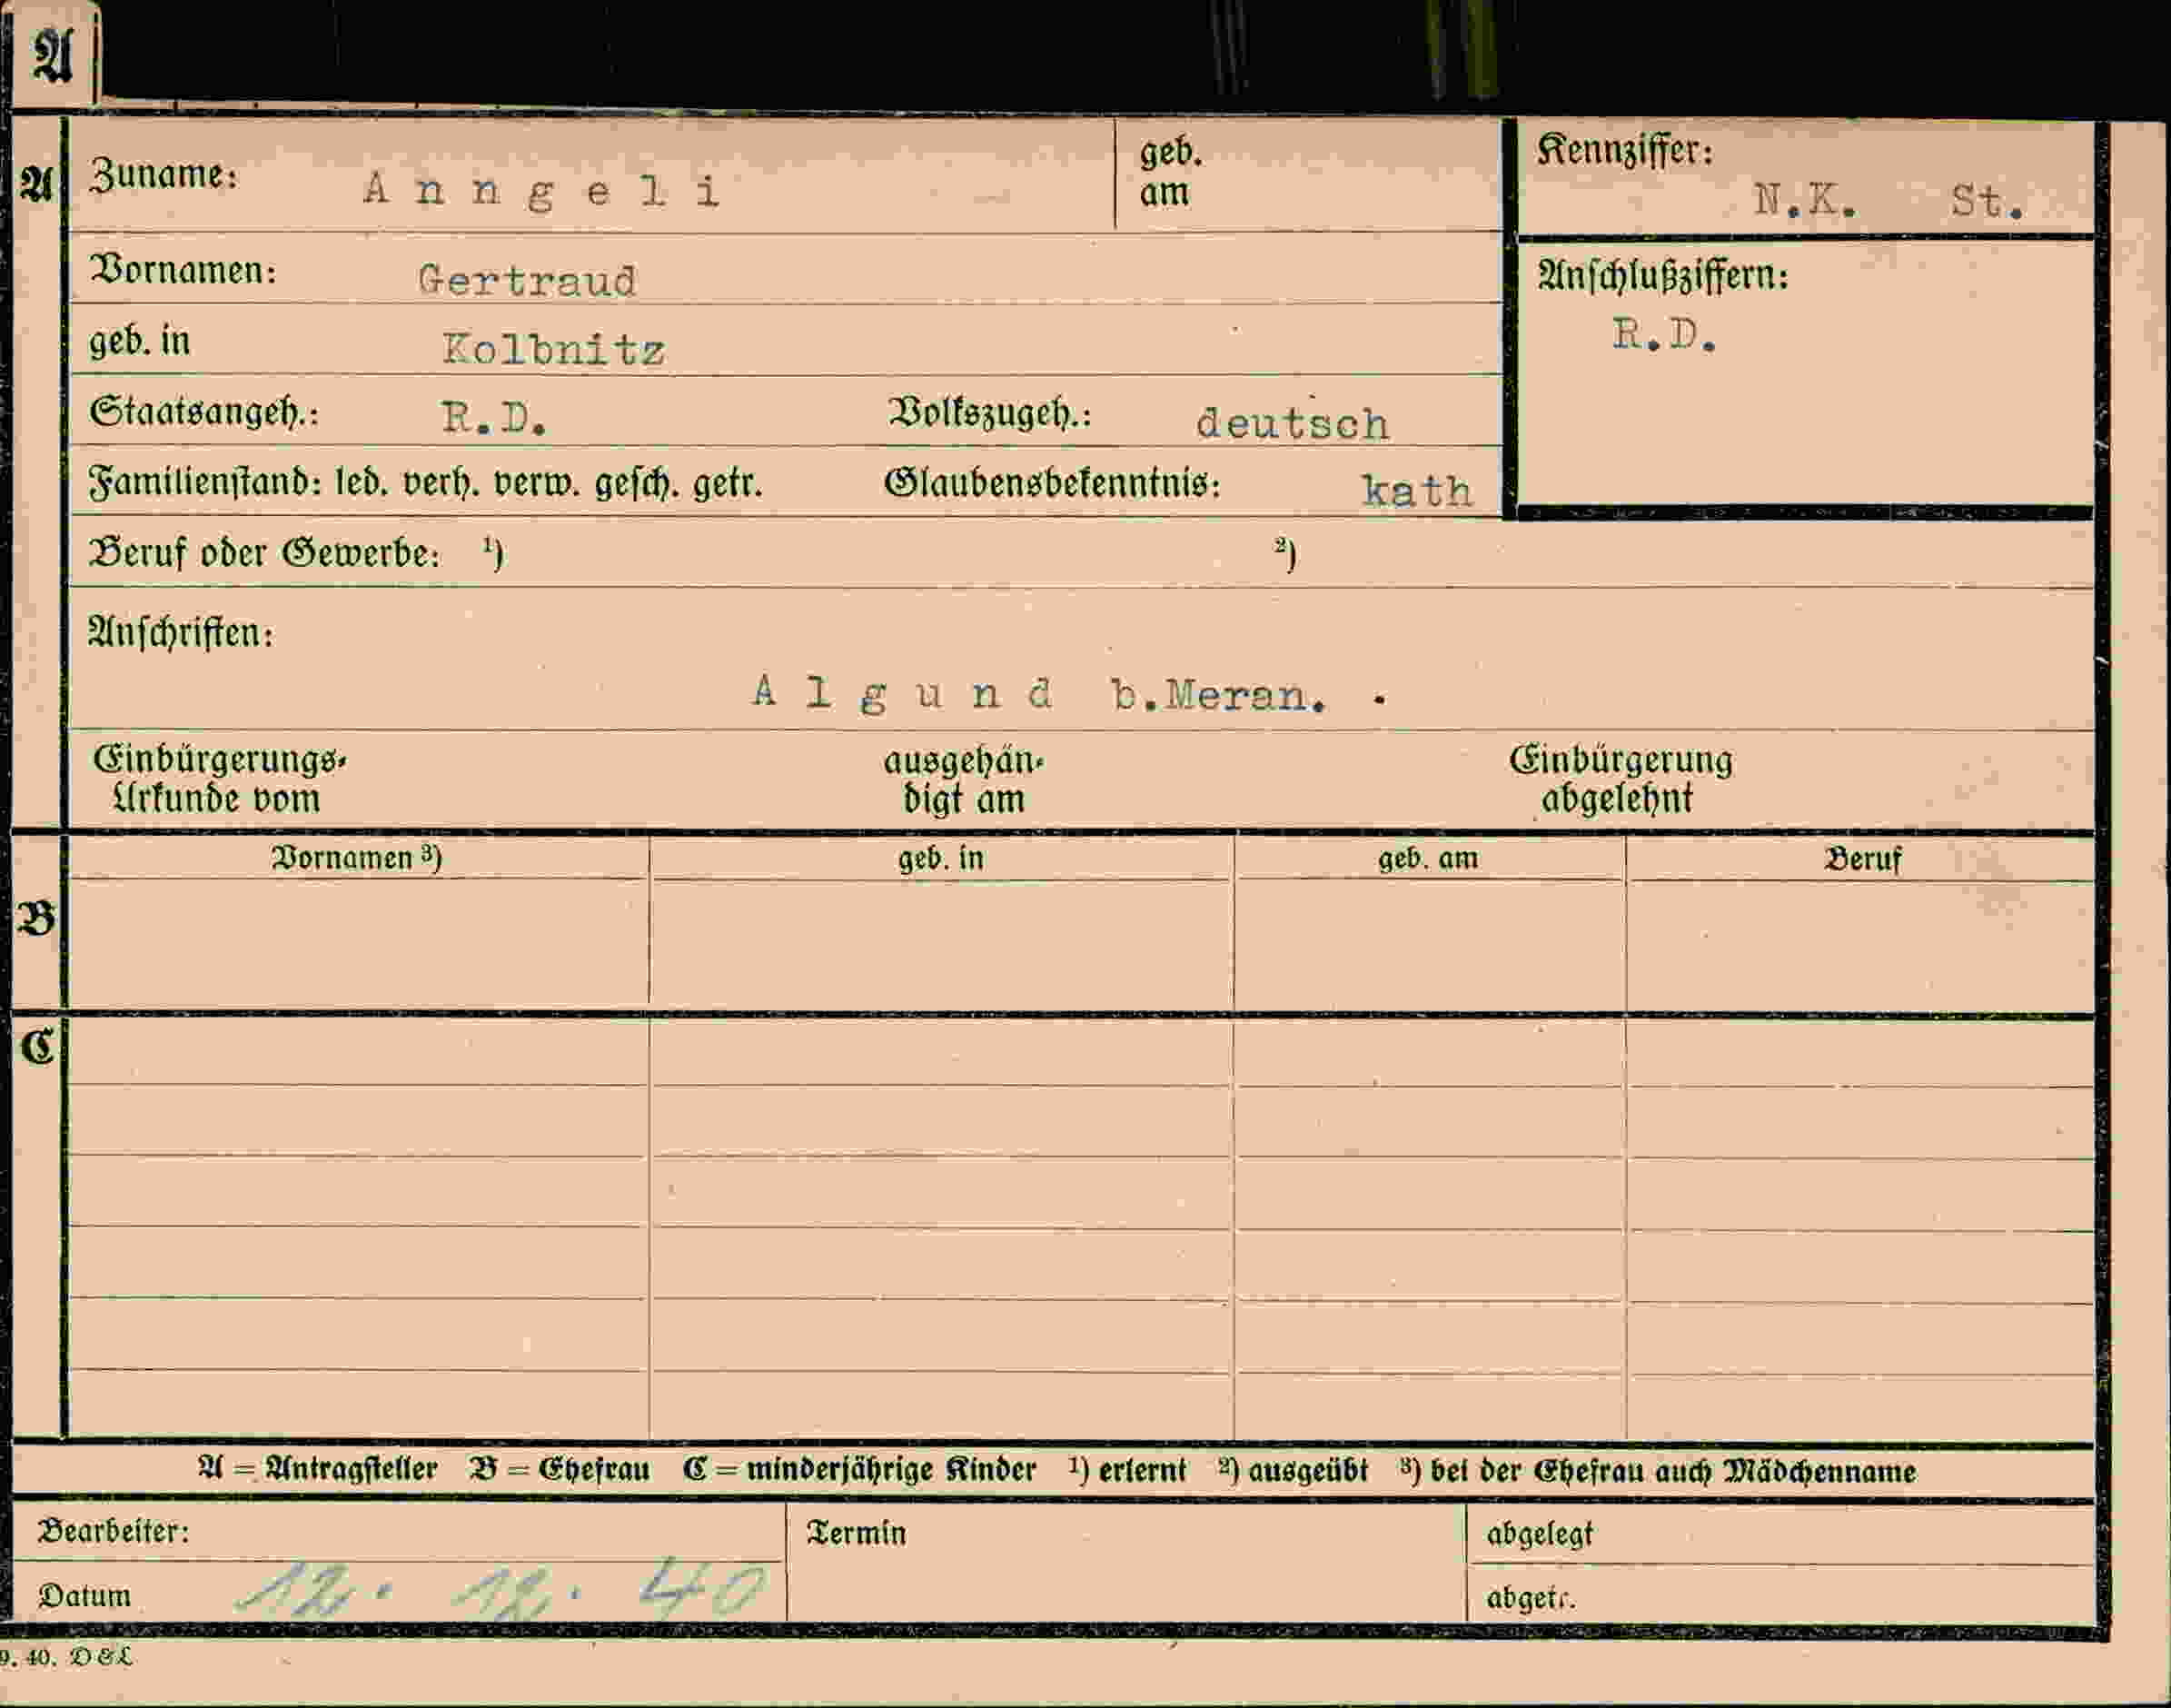 A
A
Zuname: Anngeli geb. am
Kennziffer: N.K. St.
Vornamen: Gertraud
Anschlußziffern:
R.D.
geb. in Kolbnitz
Staatsangeh.: R.D. Volkszugeh.: deutsch
Familienstand: led. verh. verw. gesch. getr. Glaubensbekenntnis: kath
Beruf oder Gewerbe: ¹) ²)
Anschriften:
Algund b.Meran.
Einbürgerungs- ausgehän- Einbürgerung
Urkunde vom digt am abgelehnt
Vornamen ³) geb. in geb. am Beruf
B
C
A = Antragsteller B = Ehefrau C = minderjährige Kinder ¹) erlernt ²) ausgeübt ³) bei der Ehefrau auch Mädchenname
Bearbeiter: Termin abgelegt
Datum 12. 12. 40 abgetr.
9. 40. D&L